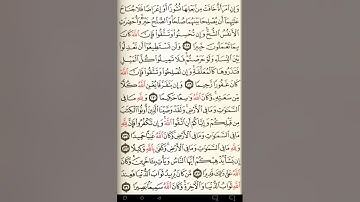 وَإِنِ ٱمْرَأَةٌ خَافَتْ مِنۢ بَعْلِهَا نُشُوزًا أَوْ إِعْرَاضًا فَلَا جُنَاحَ
عَلَيْهِمَآ أَن يُصْلِحَا بَيْنَهُمَا صُلْحًا وَٱلصُّلْحُ خَيْرٌ وَأُحْضِرَتِ
ٱلْأَنفُسُ ٱلشُّحَّ وَإِن تُحْسِنُوا۟ وَتَتَّقُوا۟ فَإِنَّ ٱللَّهَ كَانَ
بِمَا تَعْمَلُونَ خَبِيرًا ١٢٨ وَلَن تَسْتَطِيعُوٓا۟ أَن تَعْدِلُوا۟
بَيْنَ ٱلنِّسَآءِ وَلَوْ حَرَصْتُمْ فَلَا تَمِيلُوا۟ كُلَّ ٱلْمَيْلِ
فَتَذَرُوهَا كَٱلْمُعَلَّقَةِ وَإِن تُصْلِحُوا۟ وَتَتَّقُوا۟ فَإِنَّ ٱللَّهَ
كَانَ غَفُورًا رَّحِيمًا ١٢٩ وَإِن يَتَفَرَّقَا يُغْنِ ٱللَّهُ كُلًّا
مِّن سَعَتِهِۦ وَكَانَ ٱللَّهُ وَٰسِعًا حَكِيمًا ١٣٠ وَلِلَّهِ مَا فِى
ٱلسَّمَٰوَٰتِ وَمَا فِى ٱلْأَرْضِ وَلَقَدْ وَصَّيْنَا ٱلَّذِينَ أُوتُوا۟ ٱلْكِتَٰبَ
مِن قَبْلِكُمْ وَإِيَّاكُمْ أَنِ ٱتَّقُوا۟ ٱللَّهَ وَإِن تَكْفُرُوا۟ فَإِنَّ لِلَّهِ
مَا فِى ٱلسَّمَٰوَٰتِ وَمَا فِى ٱلْأَرْضِ وَكَانَ ٱللَّهُ غَنِيًّا حَمِيدًا ١٣١
وَلِلَّهِ مَا فِى ٱلسَّمَٰوَٰتِ وَمَا فِى ٱلْأَرْضِ وَكَفَىٰ بِٱللَّهِ وَكِيلًا ١٣٢
إِن يَشَأْ يُذْهِبْكُمْ أَيُّهَا ٱلنَّاسُ وَيَأْتِ بِـَٔاخَرِينَ وَكَانَ
ٱللَّهُ عَلَىٰ ذَٰلِكَ قَدِيرًا ١٣٣ مَّن كَانَ يُرِيدُ ثَوَابَ ٱلدُّنْيَا فَعِندَ
ٱللَّهِ ثَوَابُ ٱلدُّنْيَا وَٱلْـَٔاخِرَةِ وَكَانَ ٱللَّهُ سَمِيعًۢا بَصِيرًا ١٣٤